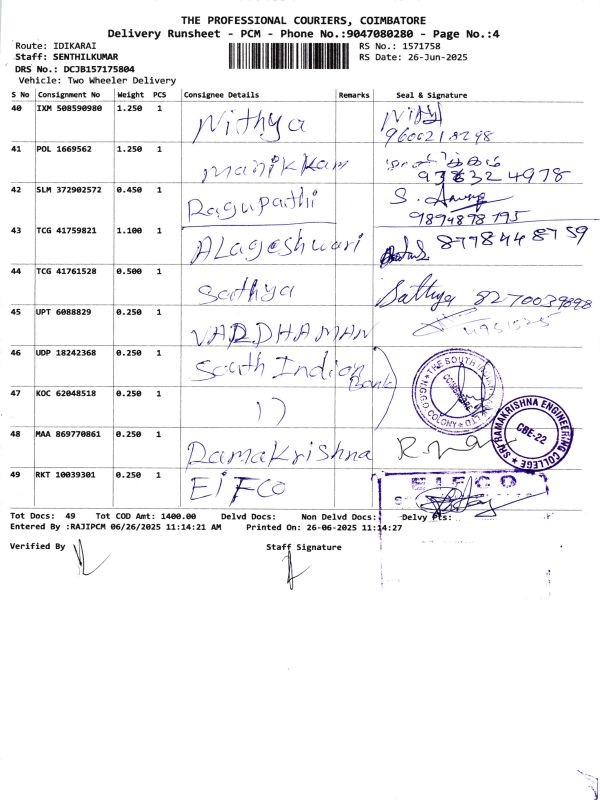 THE PROFESSIONAL COURIERS, COIMBATORE
Delivery Runsheet - PCM - Phone No.:9047080280 - Page No.:4
Route: IDIKARAI RS No.: 1571758
Staff: SENTHILKUMAR RS Date: 26-Jun-2025
DRS No.: DCJB157175804
Vehicle: Two Wheeler Delivery
S No Consignment No Weight PCS Consignee Details Remarks Seal & Signature
40 IXM 508590980 1.250 1 Nithya
9600218298
41 POL 1669562 1.250 1 Manikkam
4978
42 SLM 372902572 0.450 1 Ragupathi S.
9894878795
43 TCG 41759821 1.100 1 ALageshwari 8778448759
44 TCG 41761528 0.500 1 Sathya Sathya 8270039898
45 UPT 6088829 0.250 1 VARDHAMAN
46 UDP 18242368 0.250 1 South Indian Bank
THE SOUTH INDIAN
COIMBATORE
COLONY
47 KOC 62048518 0.250 1 ))
SRI RAMAKRISHNA ENGINEERING COLLEGE
CBE-22
48 MAA 869770861 0.250 1 RamaKrishna
49 RKT 10039301 0.250 1 EIFCO EIFCO
Tot Docs: 49 Tot COD Amt: 1400.00 Delvd Docs: Non Delvd Docs: Delvy Pts:
Entered By :RAJIPCM 06/26/2025 11:14:21 AM Printed On: 26-06-2025 11:14:27
Verified By Staff Signature